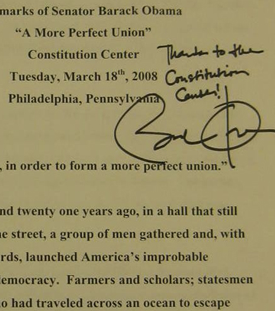 marks of Senator Barack Obama
“A More Perfect Union”
Constitution Center
Tuesday, March 18th, 2008
Philadelphia, Pennsylvania
Thanks to the
Constitution
Center!
, in order to form a more perfect union.”
nd twenty one years ago, in a hall that still
e street, a group of men gathered and, with
rds, launched America’s improbable
democracy. Farmers and scholars; statesmen
o had traveled across an ocean to escape